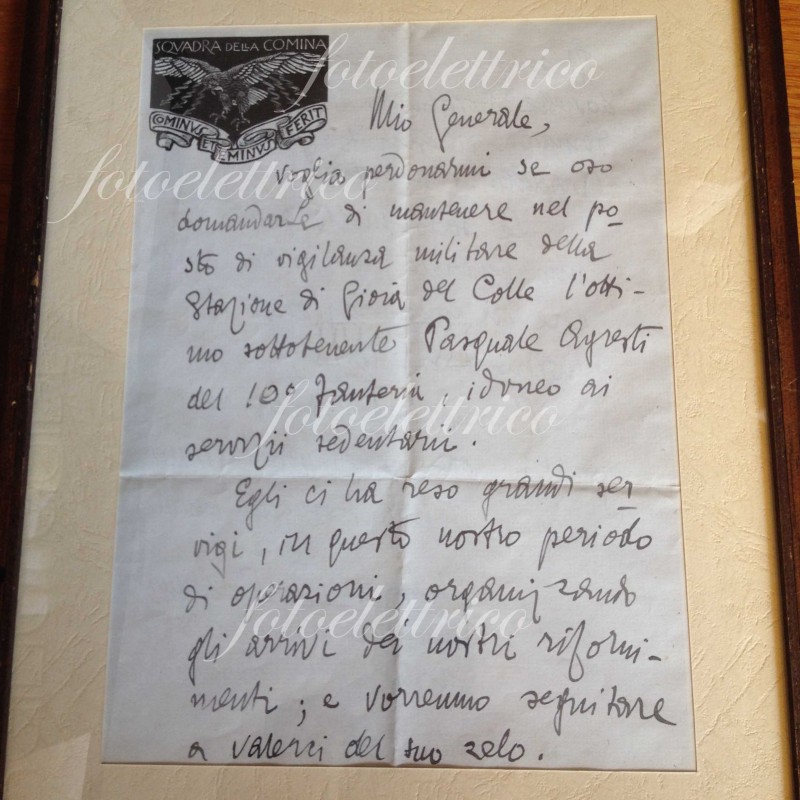 SQVADRA DELLA COMINA
COMINVS ET EMINVS FERIT
Mio Generale,
voglia perdonarmi se oso
domandarLe di mantenere nel po-
sto di vigilanza militare della
Stazione di Gioia del Colle l'otti-
mo sottotenente Pasquale Agresti
del 10° Fanteria, idoneo ai
servizii sedentarii.
Egli ci ha reso grandi ser-
vigi, in questo nostro periodo
di operazioni, organizzando
gli arrivi dei nostri riforni-
menti; e vorremmo seguitare
a valerci del suo zelo.
fotoelettrico
fotoelettrico
fotoelettrico
fotoelettrico